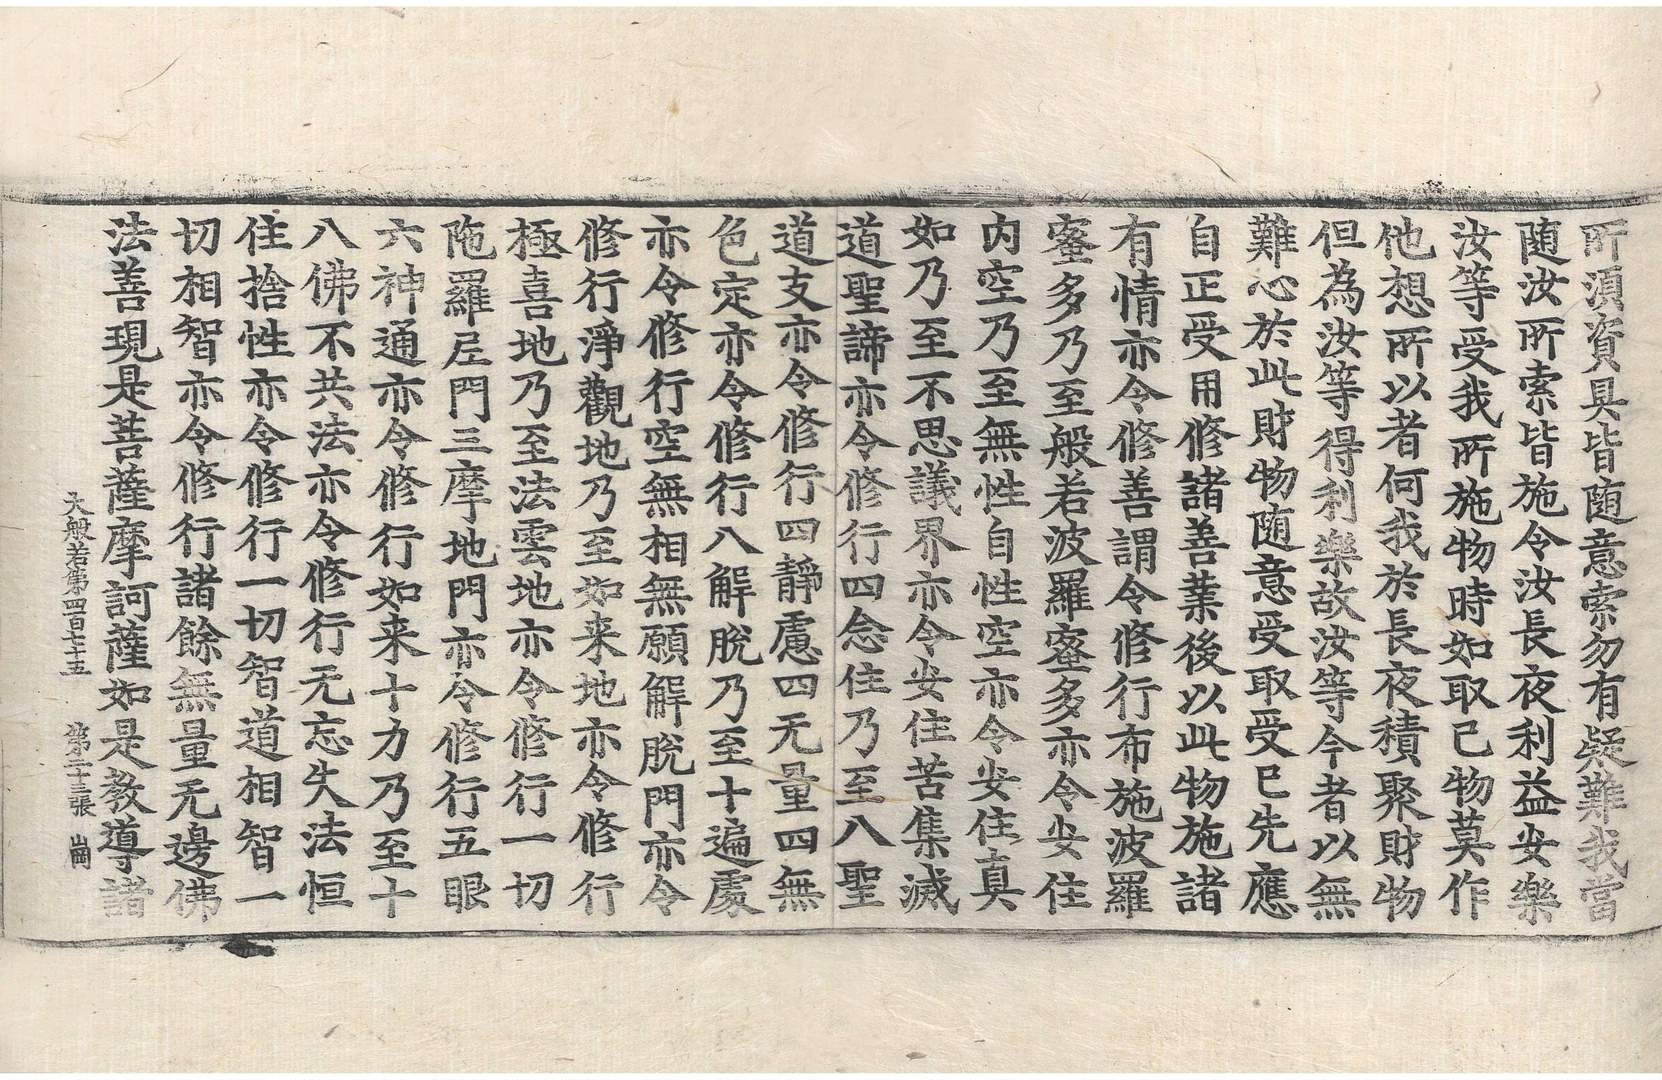 所湏資具皆随意索勿有疑難我當
随汝所索皆施令汝長夜利益安樂
汝等受我所施物時如取己物莫作
他想所以者何我於長夜積聚財物
但為汝等得利樂故汝等今者以無
難心於此財物随意受取受已先應
自正受用修諸善業後以此物施諸
有情亦令修善謂令修行布施波羅
蜜多乃至般若波羅蜜多亦令安住
内空乃至無性自性空亦令安住真
如乃至不思議界亦令安住苦集滅
道聖諦亦令修行四念住乃至八聖
道支亦令修行四靜慮四无量四無
色定亦令修行八解脫乃至十遍處
亦令修行空無相無願解脫門亦令
修行淨觀地乃至如来地亦令修行
極喜地乃至法雲地亦令修行一切
陁羅尼門三摩地門亦令修行五眼
六神通亦令修行如来十力乃至十
八佛不共法亦令修行无忘失法恒
住捨性亦令修行一切智道相智一
切相智亦令修行諸餘無量无邊佛
法善現是菩薩摩訶薩如是教導諸
大般若第四百七十五 第二十三張 崗